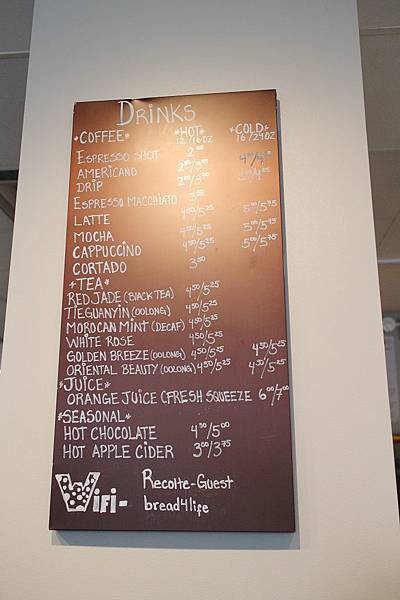 DRINKS
*COFFEE* *HOT* *COLD*
12/16OZ 16/24OZ
ESPRESSO SHOT 2.00
AMERICANO
DRIP
ESPRESSO MACCHIATO 3.00
LATTE 4.50/5.25 5.00/5.75
MOCHA 4.50/5.25 5.00/5.75
CAPPUCCINO 4.50/5.25 5.00/5.75
CORTADO 3.50
*TEA*
RED JADE (BLACK TEA) 4.50/5.25
TIEGUANYIN (OOLONG) 4.50/5.25
MOROCAN MINT (DECAF) 4.50/5.25
WHITE ROSE 4.50/5.25
GOLDEN BREEZE (OOLONG) 4.50/5.25 4.50/5.25
ORIENTAL BEAUTY (OOLONG) 4.50/5.25 4.50/5.25
*JUICE*
ORANGE JUICE (FRESH SQUEEZE 6.00/7.00
*SEASONAL*
HOT CHOCOLATE 4.00/5.00
HOT APPLE CIDER 3.00/3.75
WIFI- Recolte-Guest
bread4life